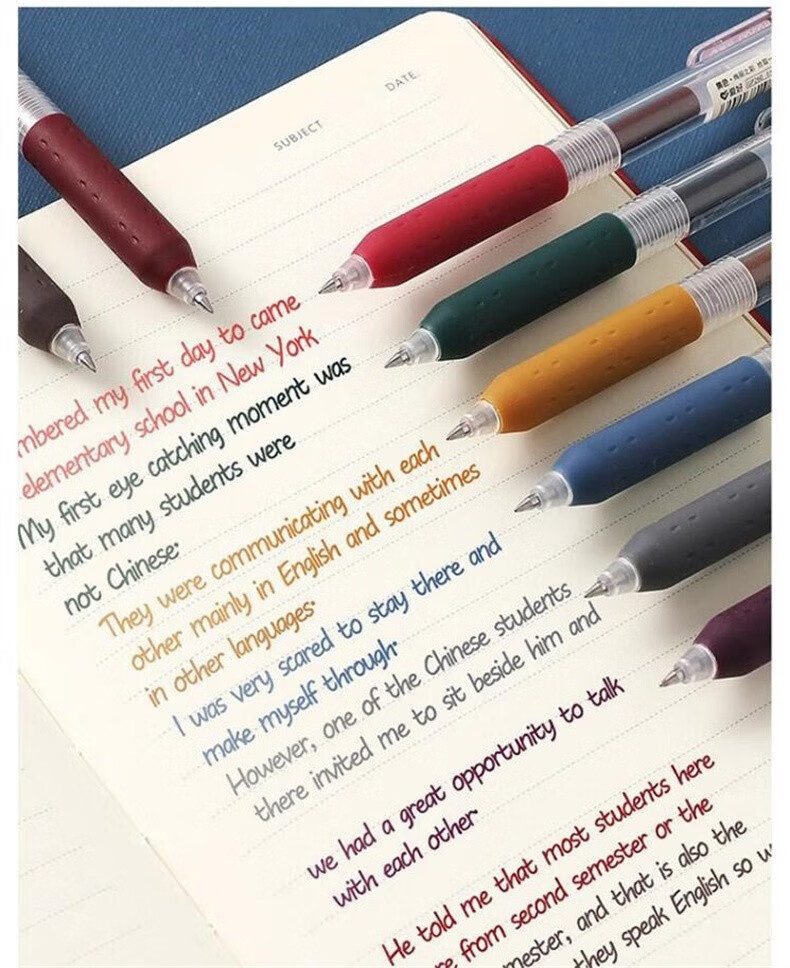 SUBJECT
DATE
mbered my first day to came
elementary school in New York
My first eye catching moment was
that many students were
not Chinese:
They were communicating with each
other mainly in English and sometimes
in other languages.
I was very scared to stay there and
make myself through.
However, one of the Chinese students
there invited me to sit beside him and
we had a great opportunity to talk
with each other.
He told me that most students here
re from second semester or the
mester, and that is also the
they speak English so w